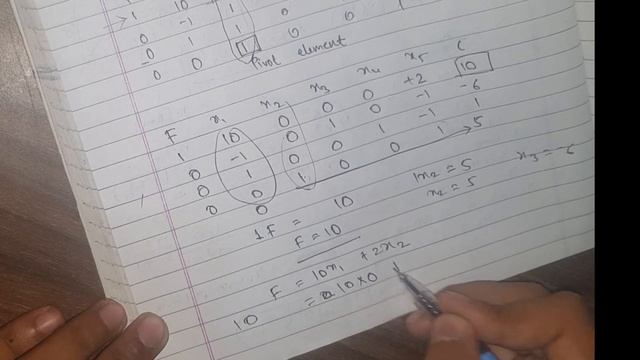 1 10 1
0 -1 1 0
0 1 1 0 0 1
0 0
Pivot element
F x₁ x₂ x₃ x₄ x₅ C
1 10 0 0 0 +2 10
0 -1 0 1 0 -1 -6
0 1 0 0 1 -1 1
0 0 1 0 0 1 5
0
1F = 10
1x₂ = 5
x₃ = -6
F = 10
x₂ = 5
F = 10x₁ + 2x₂
10 = 10×0